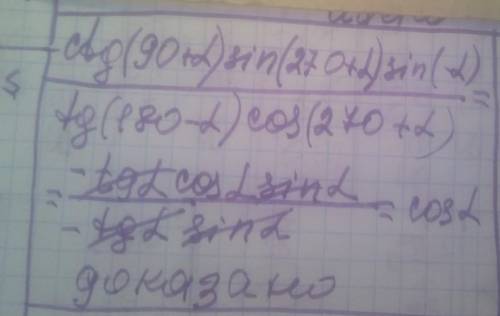 ctg(90+α)sin(270+α)sin(-α)
tg(180-α)cos(270+α)
=
= -tgα cosα sinα
-tgα sinα
= cosα
доказано